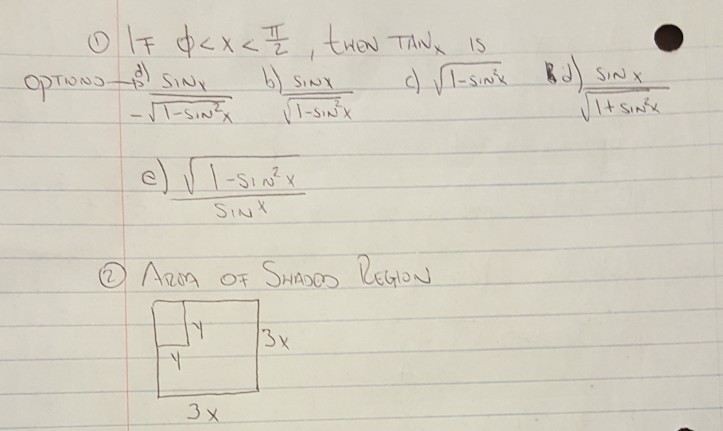 ① IF ϕ < x < π/2, tHEN TANx IS
OPTIONS → a) SINx / -√(1-SIN²x) b) SINx / √(1-SIN²x) c) √(1-SIN²x) d) SIN x / √(1+SIN²x)
e) √(1-SIN²x) / SIN x
② AREA OF SHADED REGION
Y 3x
Y
3x